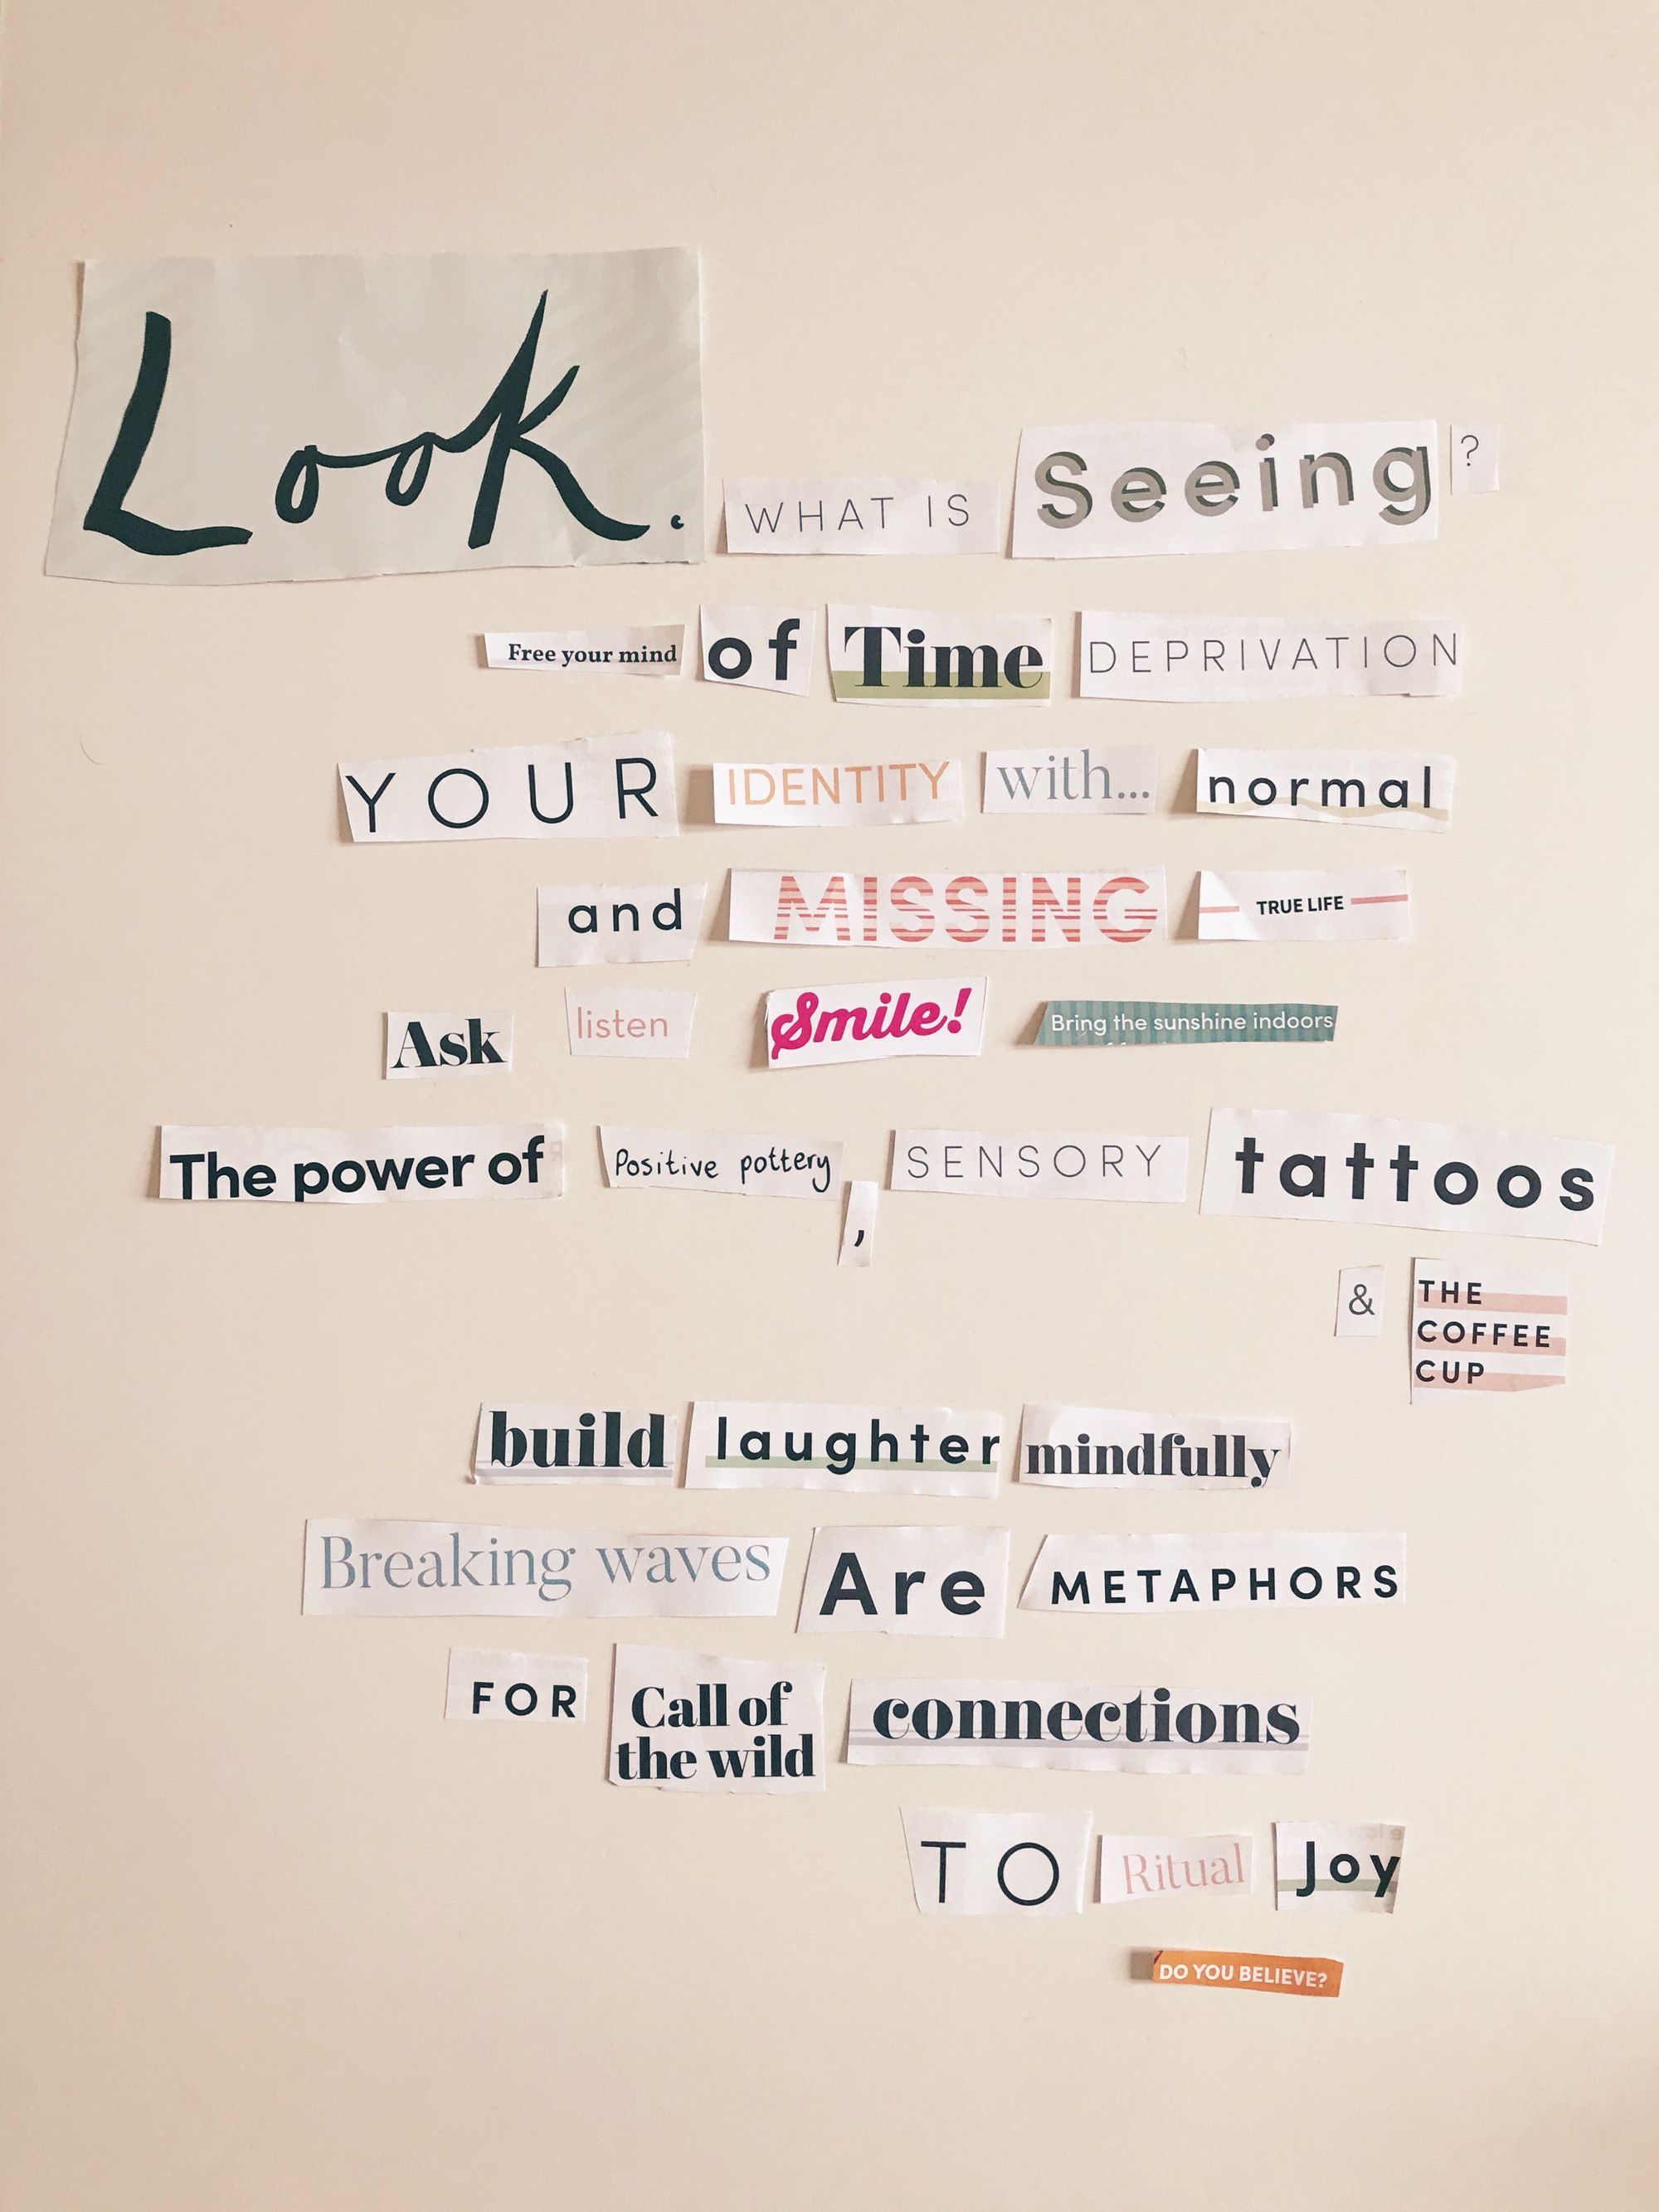 Look. WHAT IS Seeing ?
Free your mind of Time DEPRIVATION
YOUR IDENTITY with... normal
and MISSING TRUE LIFE
Ask listen Smile! Bring the sunshine indoors
The power of Positive pottery , SENSORY tattoos
& THE
COFFEE
CUP
build laughter mindfully
Breaking waves Are METAPHORS
FOR Call of
the wild connections
TO Ritual Joy
DO YOU BELIEVE?